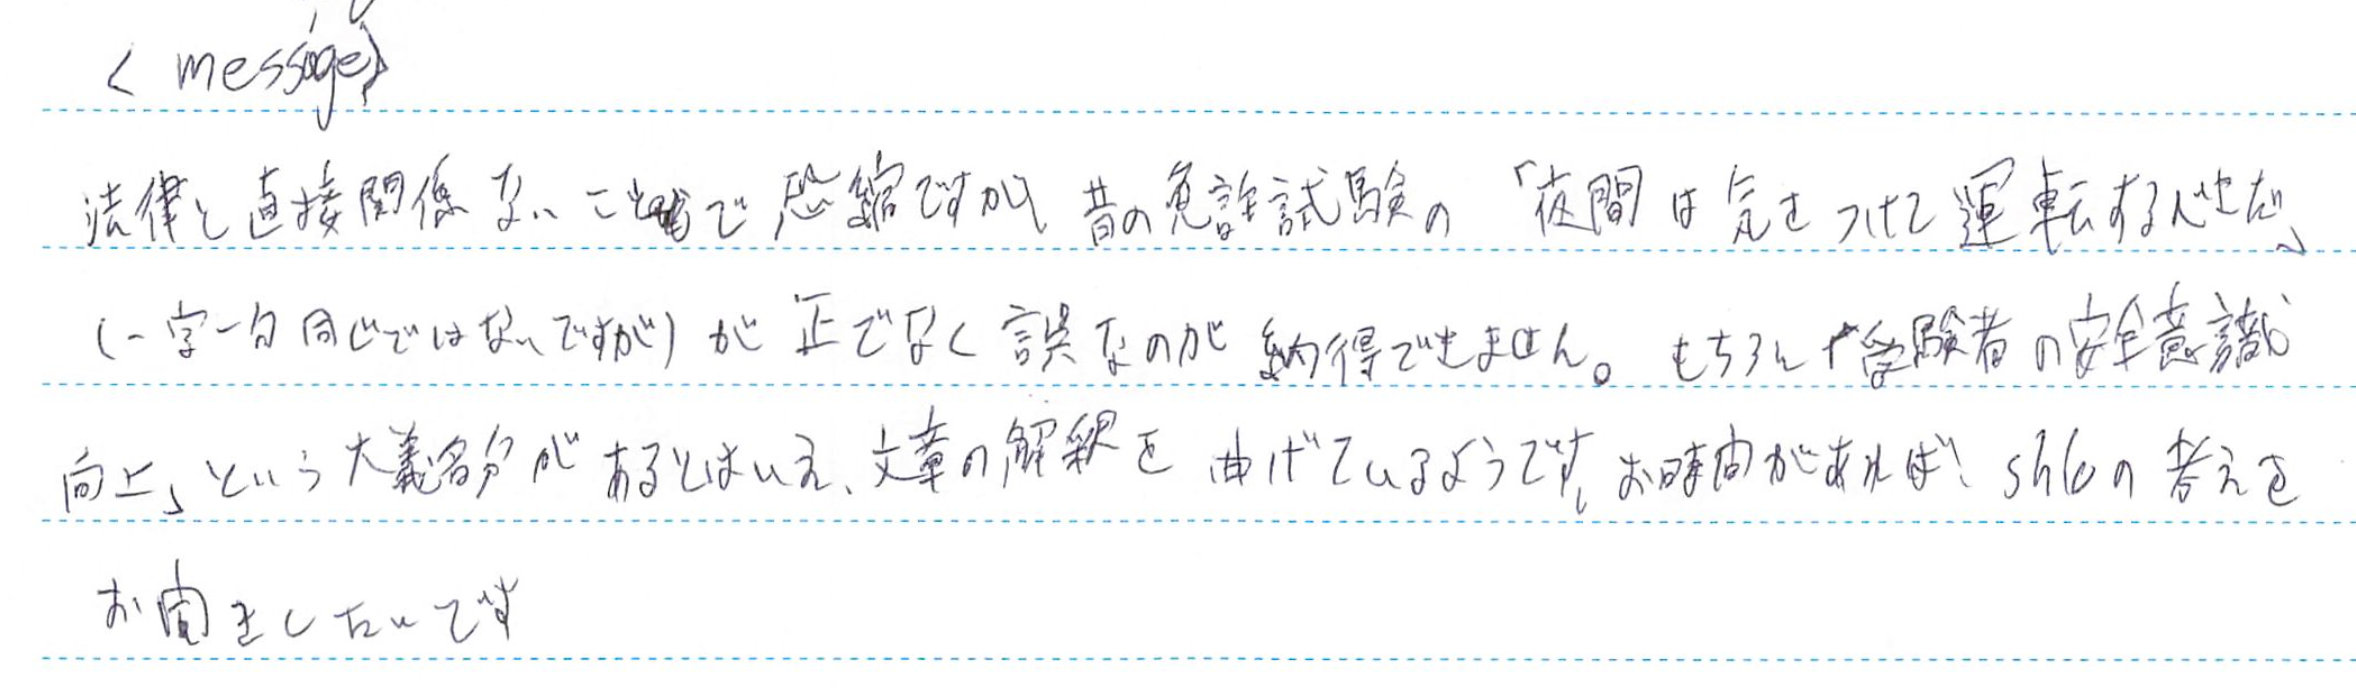 < message>
法律と直接関係ないことで恐縮ですが、昔の免許試験の「夜間は気をつけて運転するべきだ」
(一字一句同じではないですが)が正でなく誤なのが納得できません。もちろん「受験者の安全意識
向上」という大義名分があるとはいえ、文章の解釈を曲げているようです。お時間があれば、の考えを
お聞きしたいです